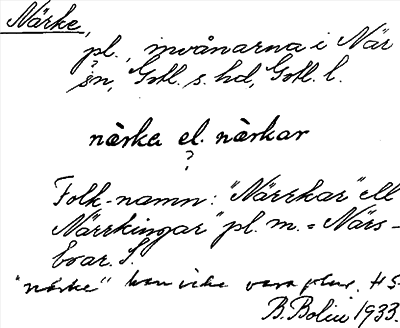 Närke,
pl., invånarna i När
sn, Gotl. s. hd, Gotl. l.
nàrke el. nàrkar
?
Folk-namn: "Närrkar" ell
Närrkingar" pl. m. = Närs-
boar. S.
"nàrke" kan icke vara plur. H S.
B. Bolin 1933.